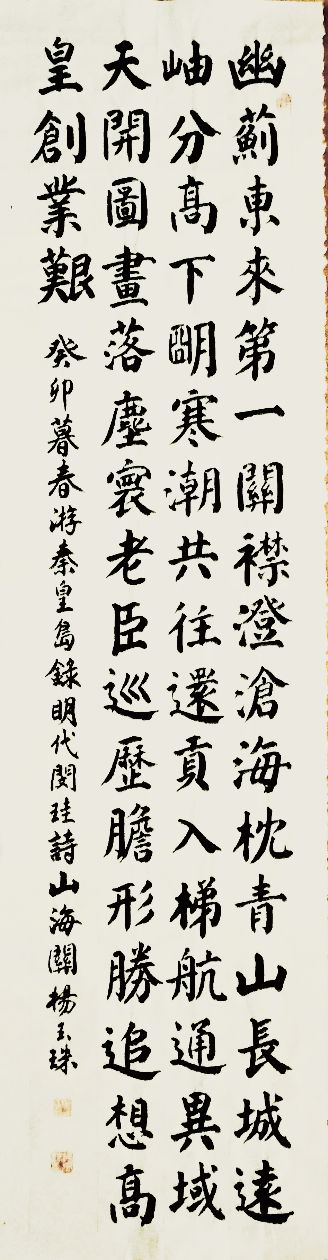 幽薊東來第一關襟澄滄海枕青山長城遠
岫分高下明寒潮共往還貢入梯航通異域
天開圖畫落塵寰老臣巡歷膽形勝追想高
皇創業艱
癸卯暮春游秦皇島錄明代閔珪詩山海關楊玉珠